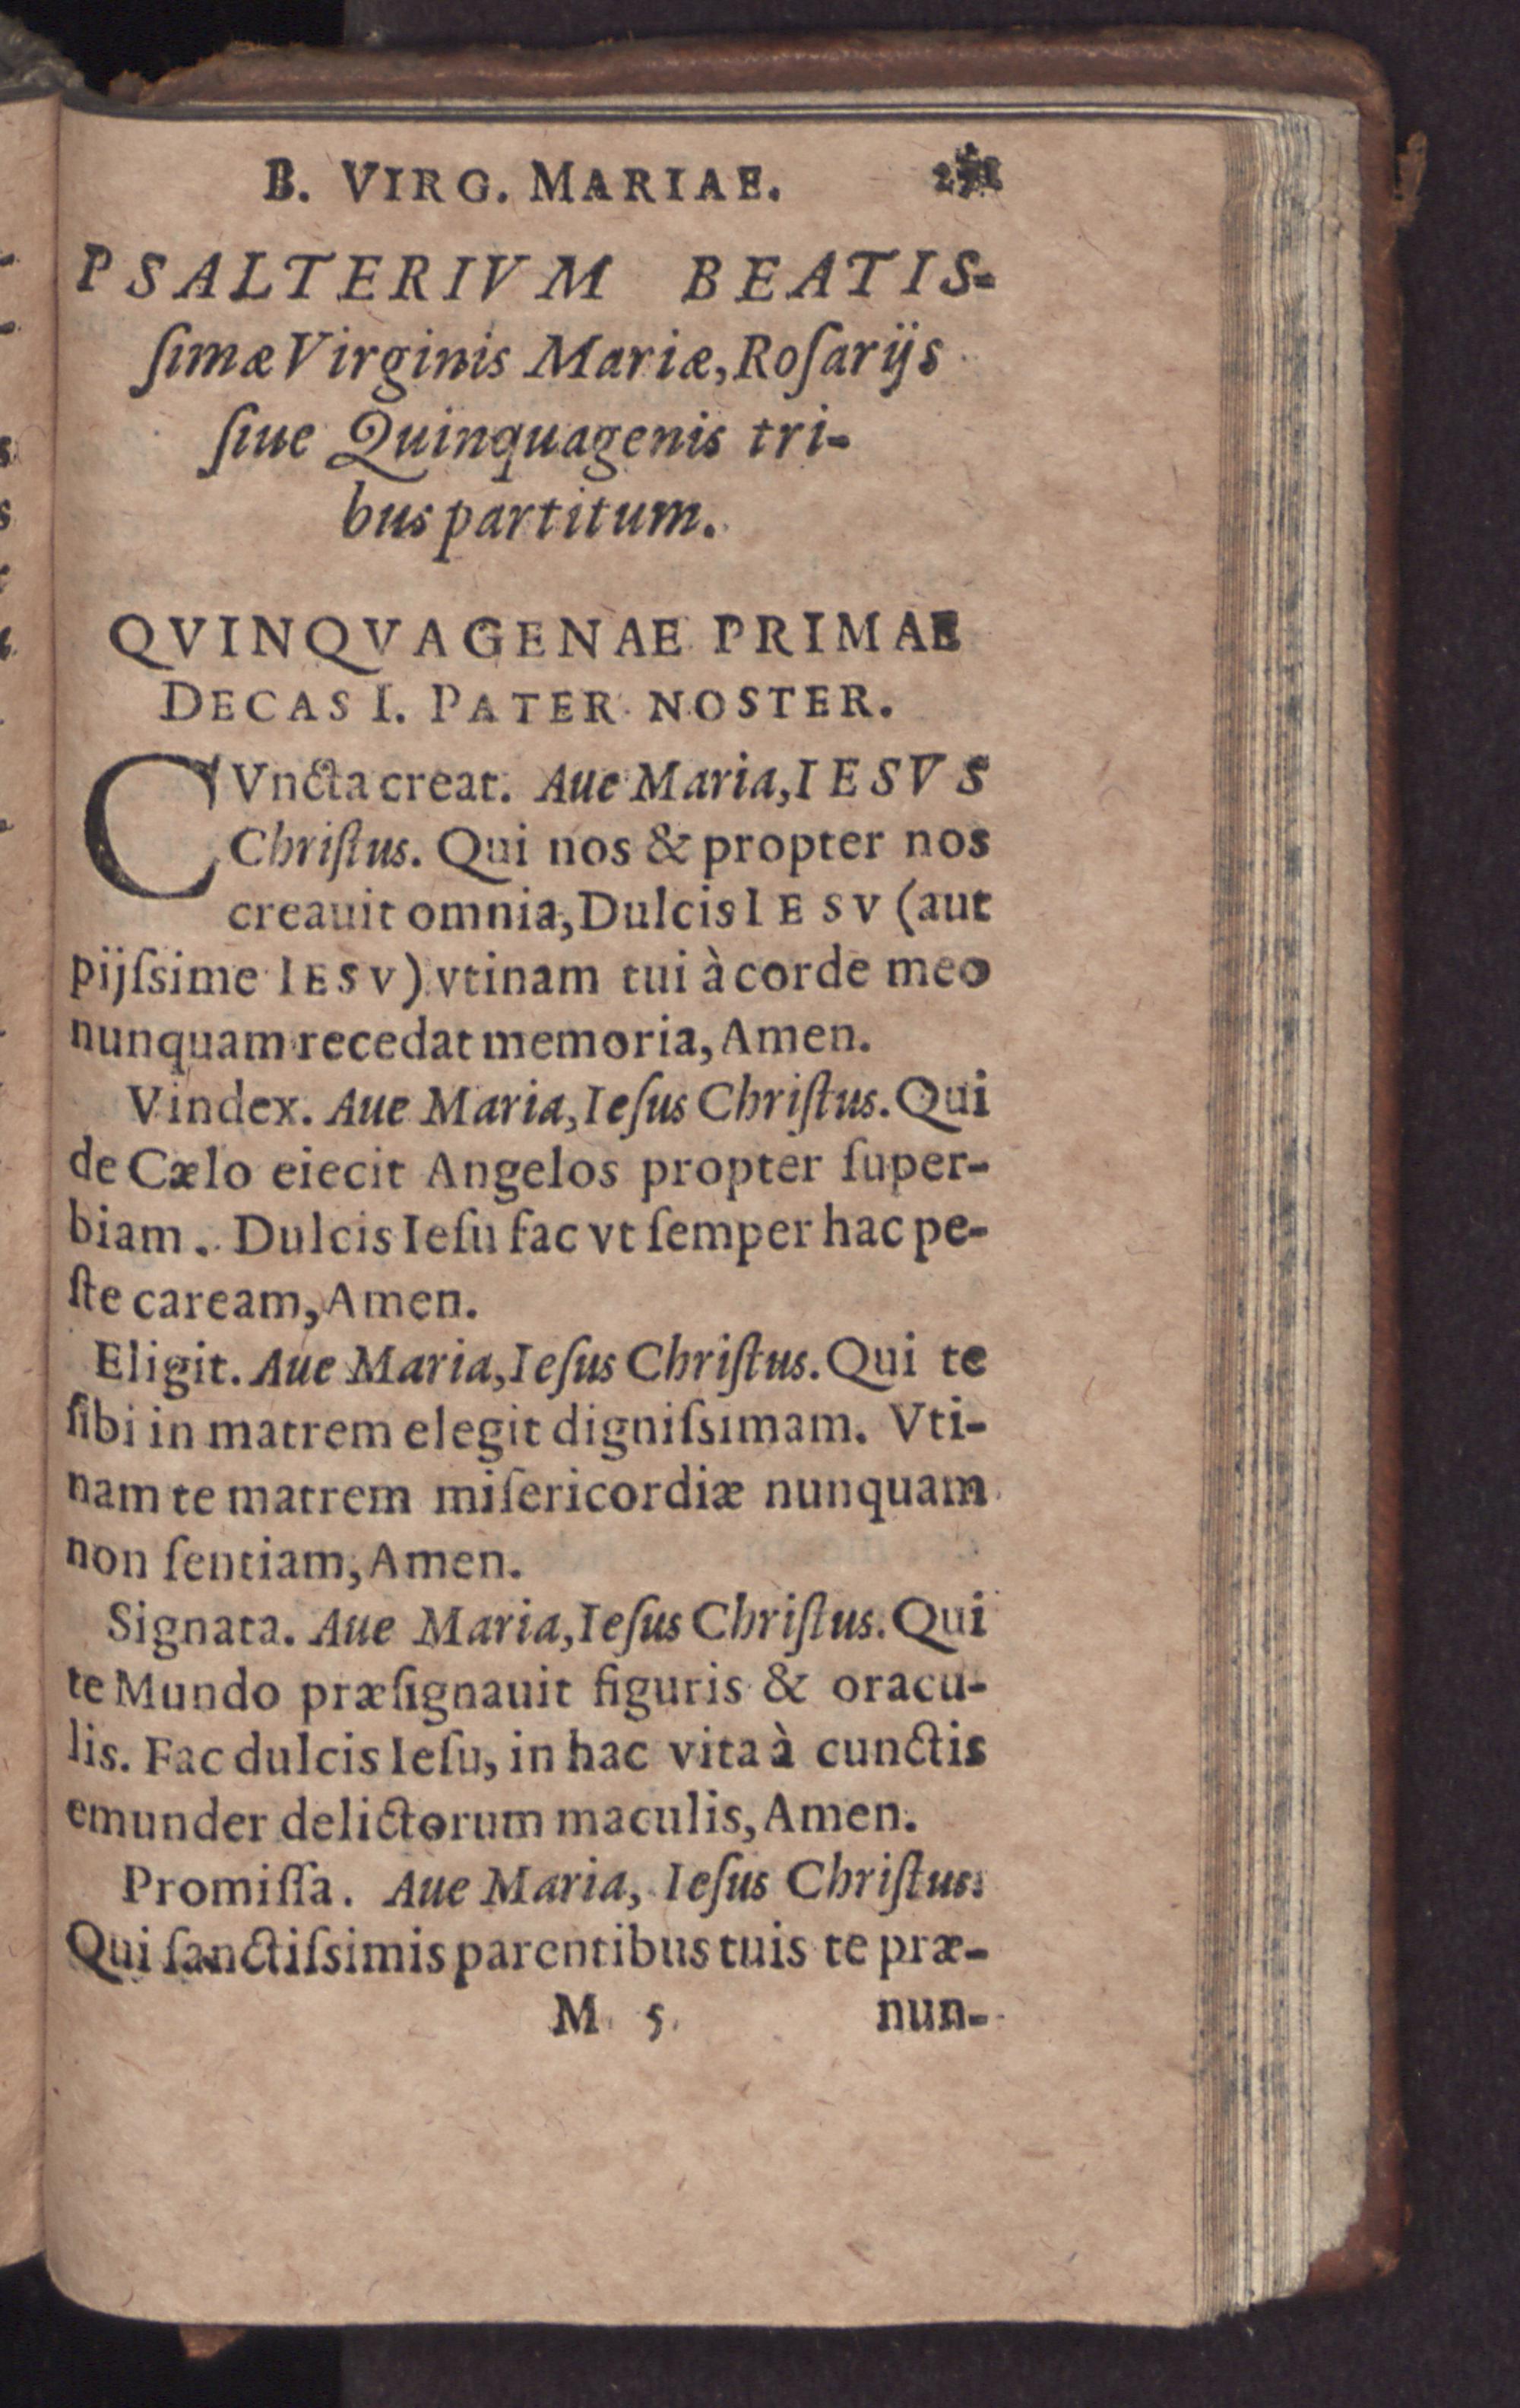 B. VIRG. MARIAE.
PSALTERIVM BEATIS-
ſimæ Virginis Mariæ, Roſarijs
ſiue Quinquagenis tri-
bus partitum.
QVINQVAGENAE PRIMAE
DECAS I. PATER NOSTER.
CVncta creat. Aue Maria, IESVS
Chriſtus. Qui nos & propter nos
creauit omnia, Dulcis IESV (aut
pijſsime IESV) vtinam tui à corde meo
nunquam recedat memoria, Amen.
Vindex. Aue Maria, Ieſus Chriſtus. Qui
de Cælo eiecit Angelos propter ſuper-
biam. Dulcis Ieſu fac vt ſemper hac pe-
ſte caream, Amen.
Eligit. Aue Maria, Ieſus Chriſtus. Qui te
ſibi in matrem elegit digniſsimam. Vti-
nam te matrem miſericordiæ nunquam
non ſentiam, Amen.
Signata. Aue Maria, Ieſus Chriſtus. Qui
te Mundo præſignauit figuris & oracu-
lis. Fac dulcis Ieſu, in hac vita à cunctis
emunder delictorum maculis, Amen.
Promiſſa. Aue Maria, Ieſus Chriſtus.
Qui ſanctiſsimis parentibus tuis te præ-
M 5 nun-